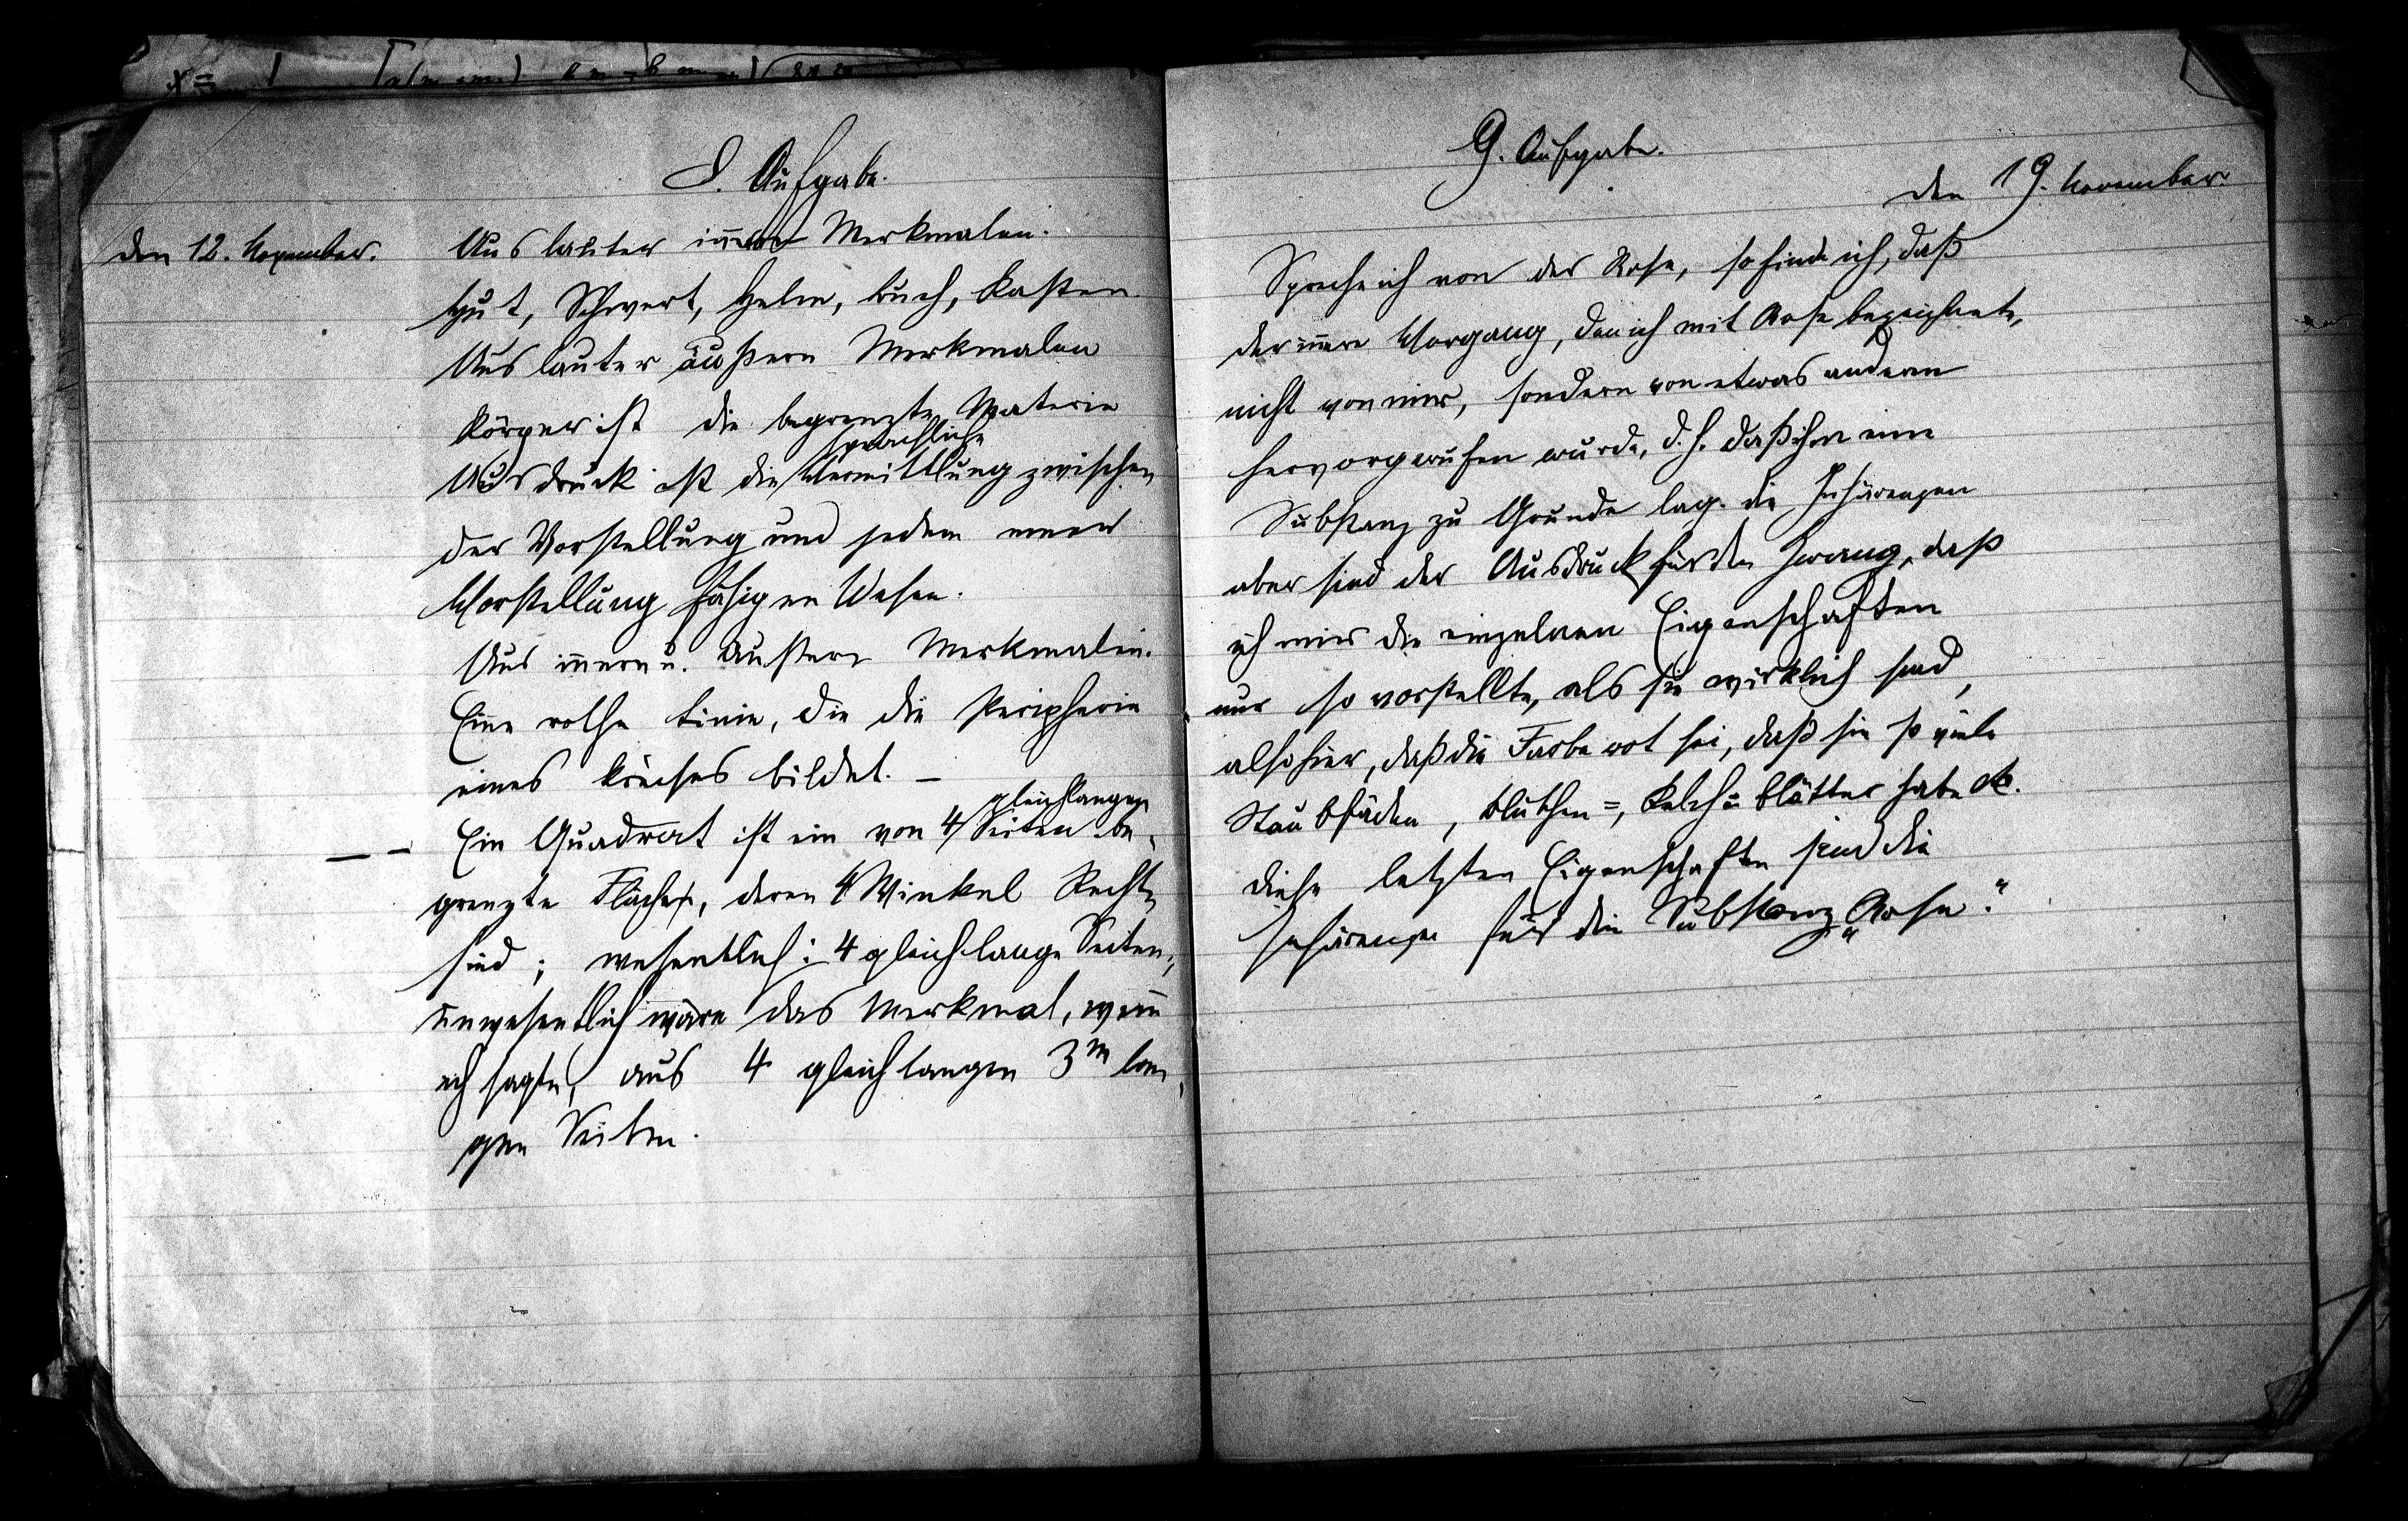 8. Aufgabe.
den 12. November.
Aus lauter innern Merkmalen.
Hut, Schwert, Helm, Buch, Kasten.
Aus lauter äußern Merkmalen
Körper ist die begrenzte Materie
sprachliche
Ausdruck ist die Vermittlung zwischen
der Vorstellung und jedem einer
Vorstellung fähigen Wesen.
Aus innern u. äußern Merkmalen.
Eine rothe Linie, die die Peripherie
eines Kreises bildet. –
gleichlangen
– – Ein Quadrat ist ein von 4 Seiten be-
grenzte Fläche, deren 4 Winkel Rechte
sind; wesentlich: 4 gleichlange Seiten;
unwesentlich wäre das Merkmal, wenn
ich sagte, aus 4 gleichlangen 3m lan-
gen Seiten.
9. Aufgabe.
den 19. November.
Spreche ich von der Rose, so finde ich, daß
der innere Vorgang, den ich mit Rose bezeichnete,
nicht von mir, sondern von etwas anderem
hervorgerufen wurde, d. h. daß ihm eine
Substanz zu Grunde lag. die Inhärenzen
aber sind der Ausdruck für den Zwang, daß
ich mir die einzelnen Eigenschaften
nur so vorstellte, als sie wirklich sind,
also hier, daß die Farbe rot sei, daß sie so viele
Staubfäden, Bluthen=, Kelch= blätter habe etc.
diese letzten Eigenschaften sind die
Inhärenzen für die Substanz „Rose".